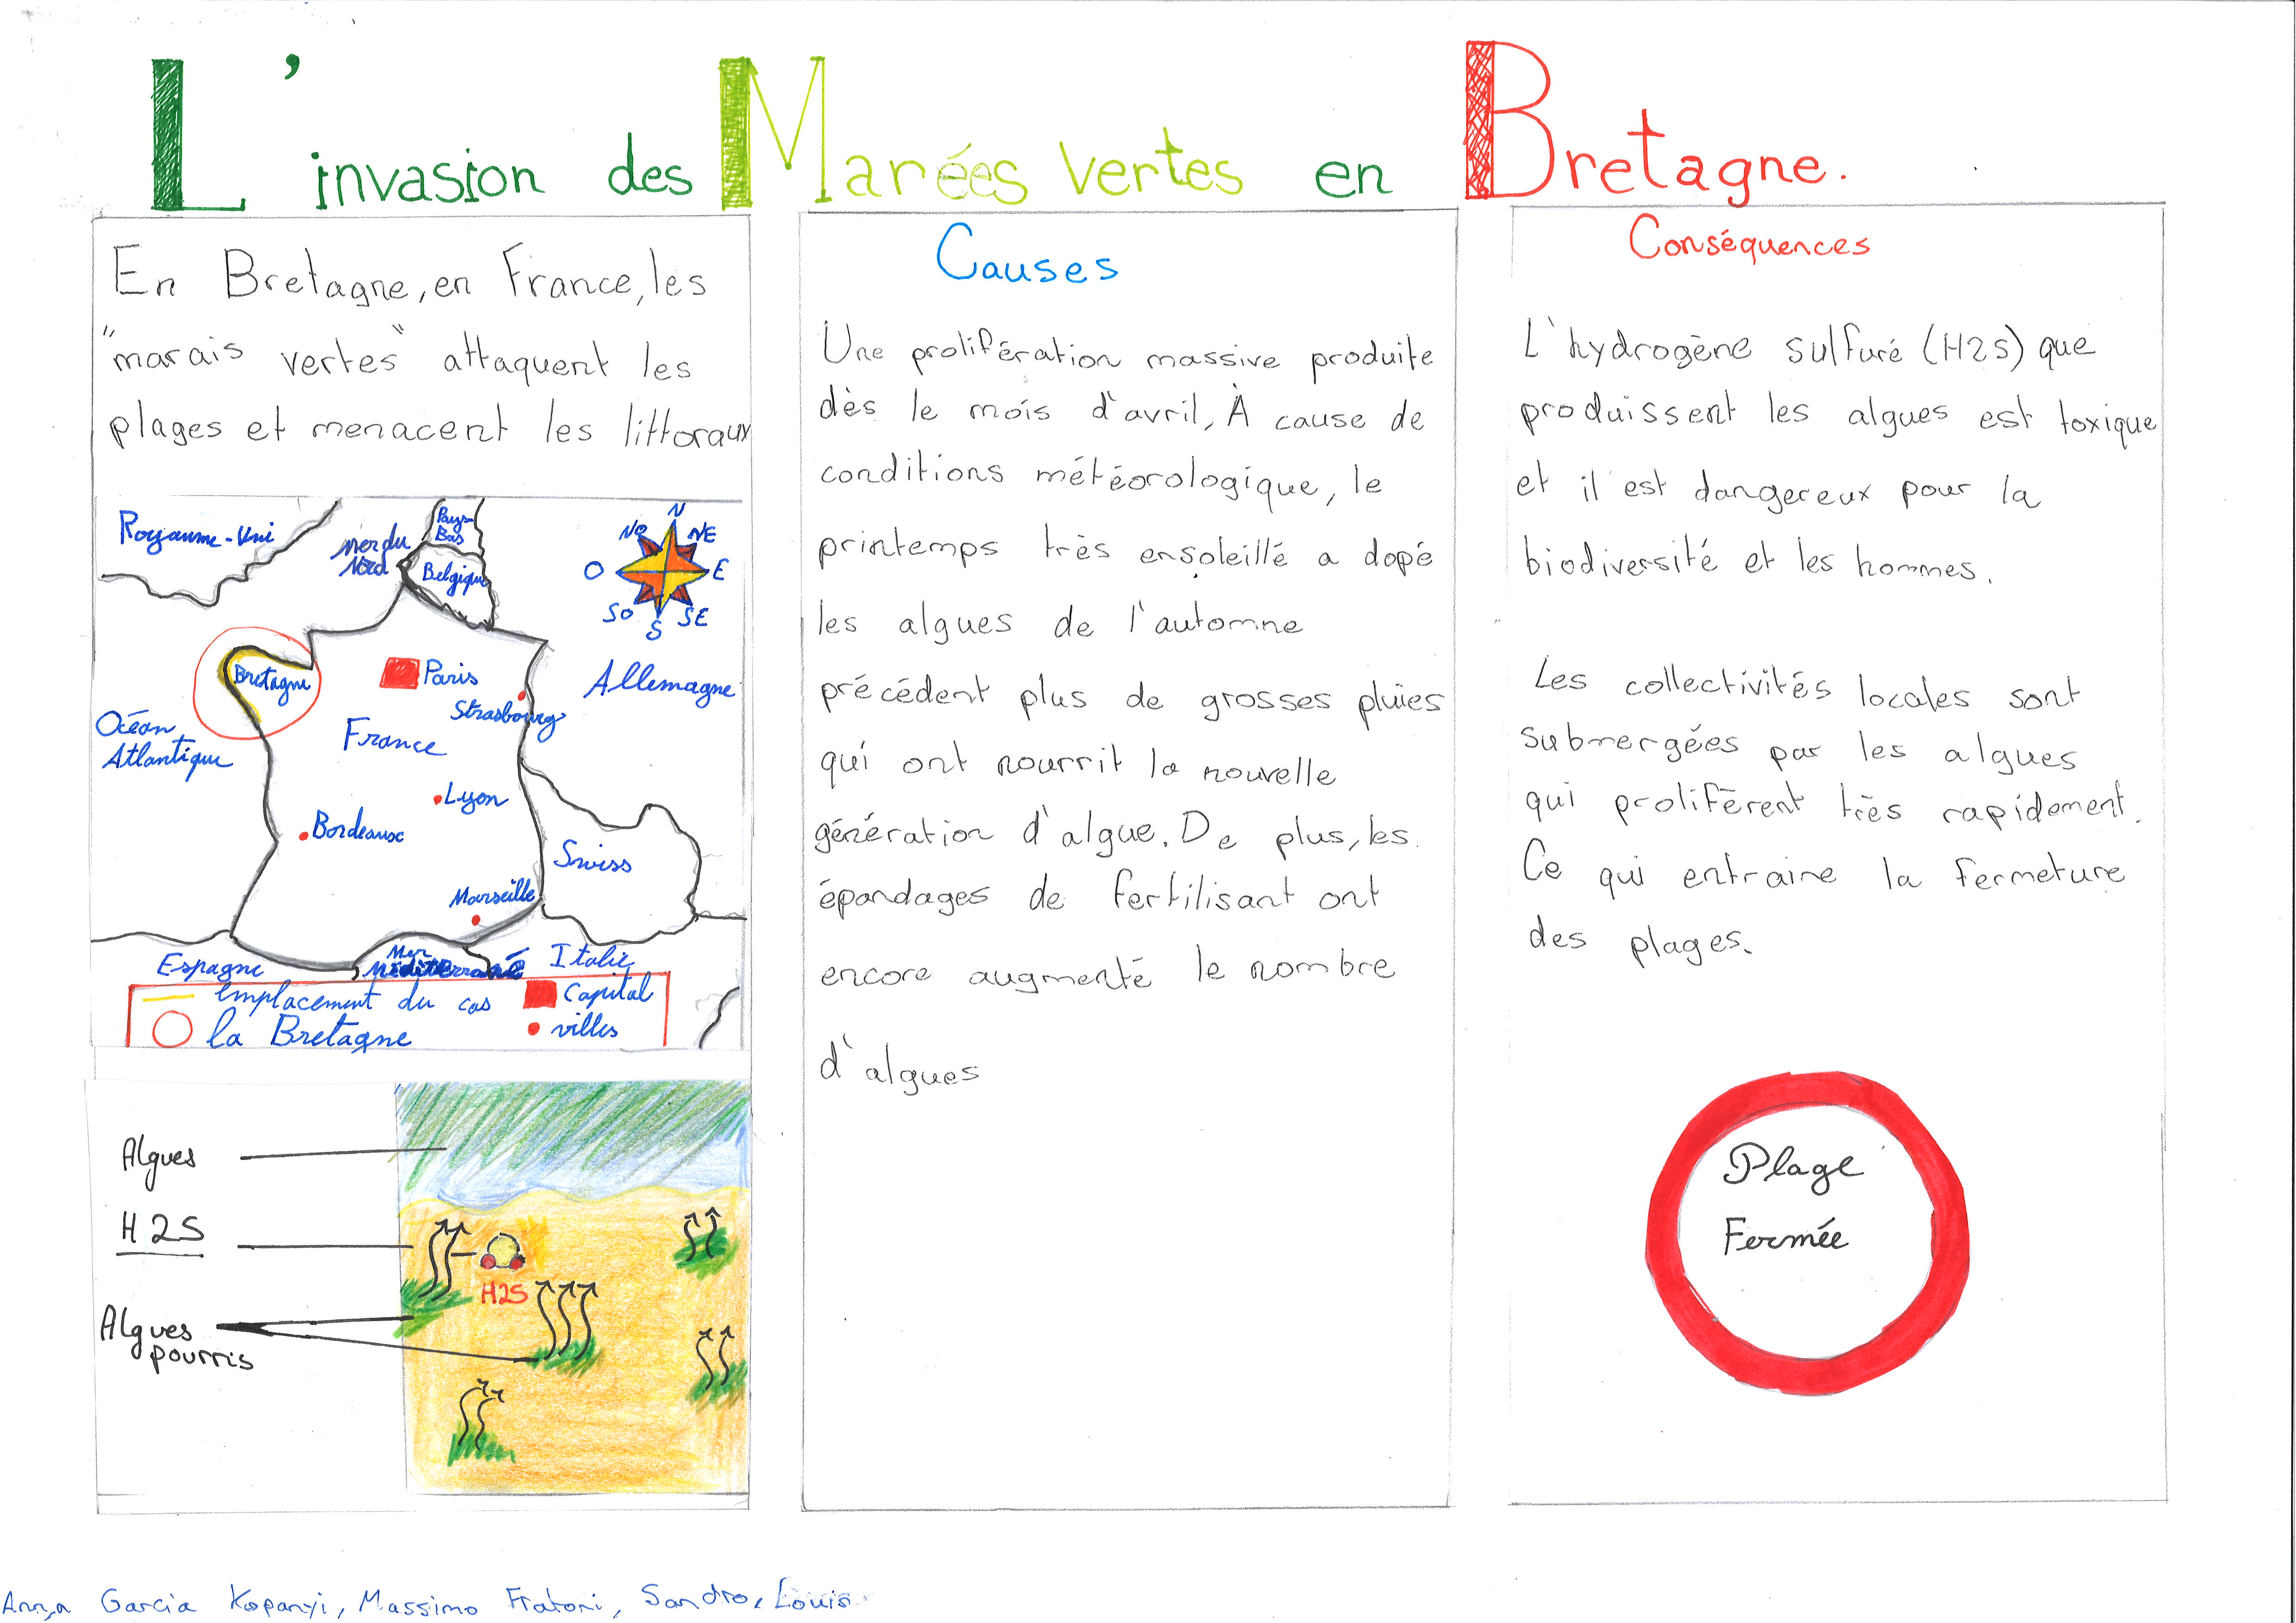 L'invasion des Marées vertes en Bretagne.
En Bretagne, en France, les
"marais vertes" attaquent les
plages et menacent les littoraux
Royaume-Uni
Mer du
Nord
Pays-
Bas
Belgique
N
NE
E
SE
S
SO
O
NO
Bretagne
Paris
Strasbourg
Allemagne
Océan
Atlantique
France
Lyon
Bordeaux
Swiss
Marseille
Espagne
Mer
Méditerrané
Italie
Emplacement du cas
Capital
la Bretagne
villes
Algues
H2S
H2S
Algues
pourris
Causes
Une prolifération massive produite
dès le mois d'avril, À cause de
conditions météorologique, le
printemps très ensoleillé a dopé
les algues de l'automne
précédent plus de grosses pluies
qui ont nourrit la nouvelle
génération d'algue. De plus, les
épandages de fertilisant ont
encore augmenté le nombre
d'algues
Conséquences
L'hydrogène sulfuré (H2S) que
produissent les algues est toxique
et il est dangereux pour la
biodiversité et les hommes.
Les collectivités locales sont
submergées par les algues
qui prolifèrent très rapidement.
Ce qui entraine la fermeture
des plages.
Plage
Fermée
Anna Garcia Kopanyi, Massimo Fratoni, Sandro, Louis